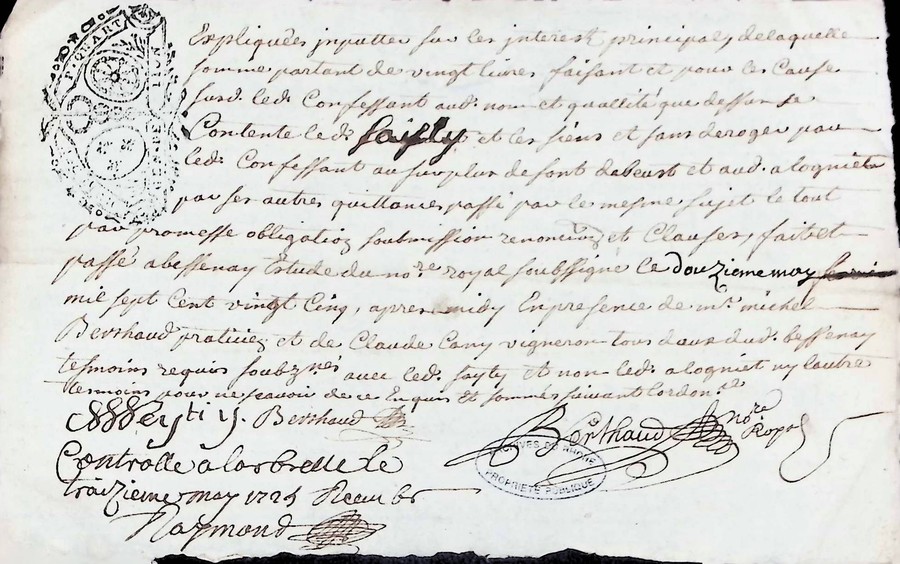 Expliquées inputter sur les interest principal, de laquelle
somme partant de vingt livres faisant et pour les Cause
susd. led. Confessant aud. nom et quallité que dessus se
Contente led. sayty et les siens et sans deroger par
led. Confessant au surplus de sont dabeust et aud. alogniet
par ses autres quittances passé par le mesme sujet le tout
par promesse obligation soubmission renon et Clauses, fait et
passé a bessenay Estude du nore royal soubsigné le douzieme may
mil sept Cent vingt Cinq, apres midy En presence de mr. michel
Berthaud praticien et de Claude Cany vigneron tous deux dud. bessenay
tesmoins requis soubznés avec led. sayty et non led. alogniet ny lautre
tesmoins pour ne scavoir de ce Enquis et sommés suivant lordonce
Berthaud
Berthaud nore Royal
Controllé a larbrelle le
traizieme may 1725 Receu
Raymond
ARCHIVES DU RHONE
PROPRIETE PUBLIQUE